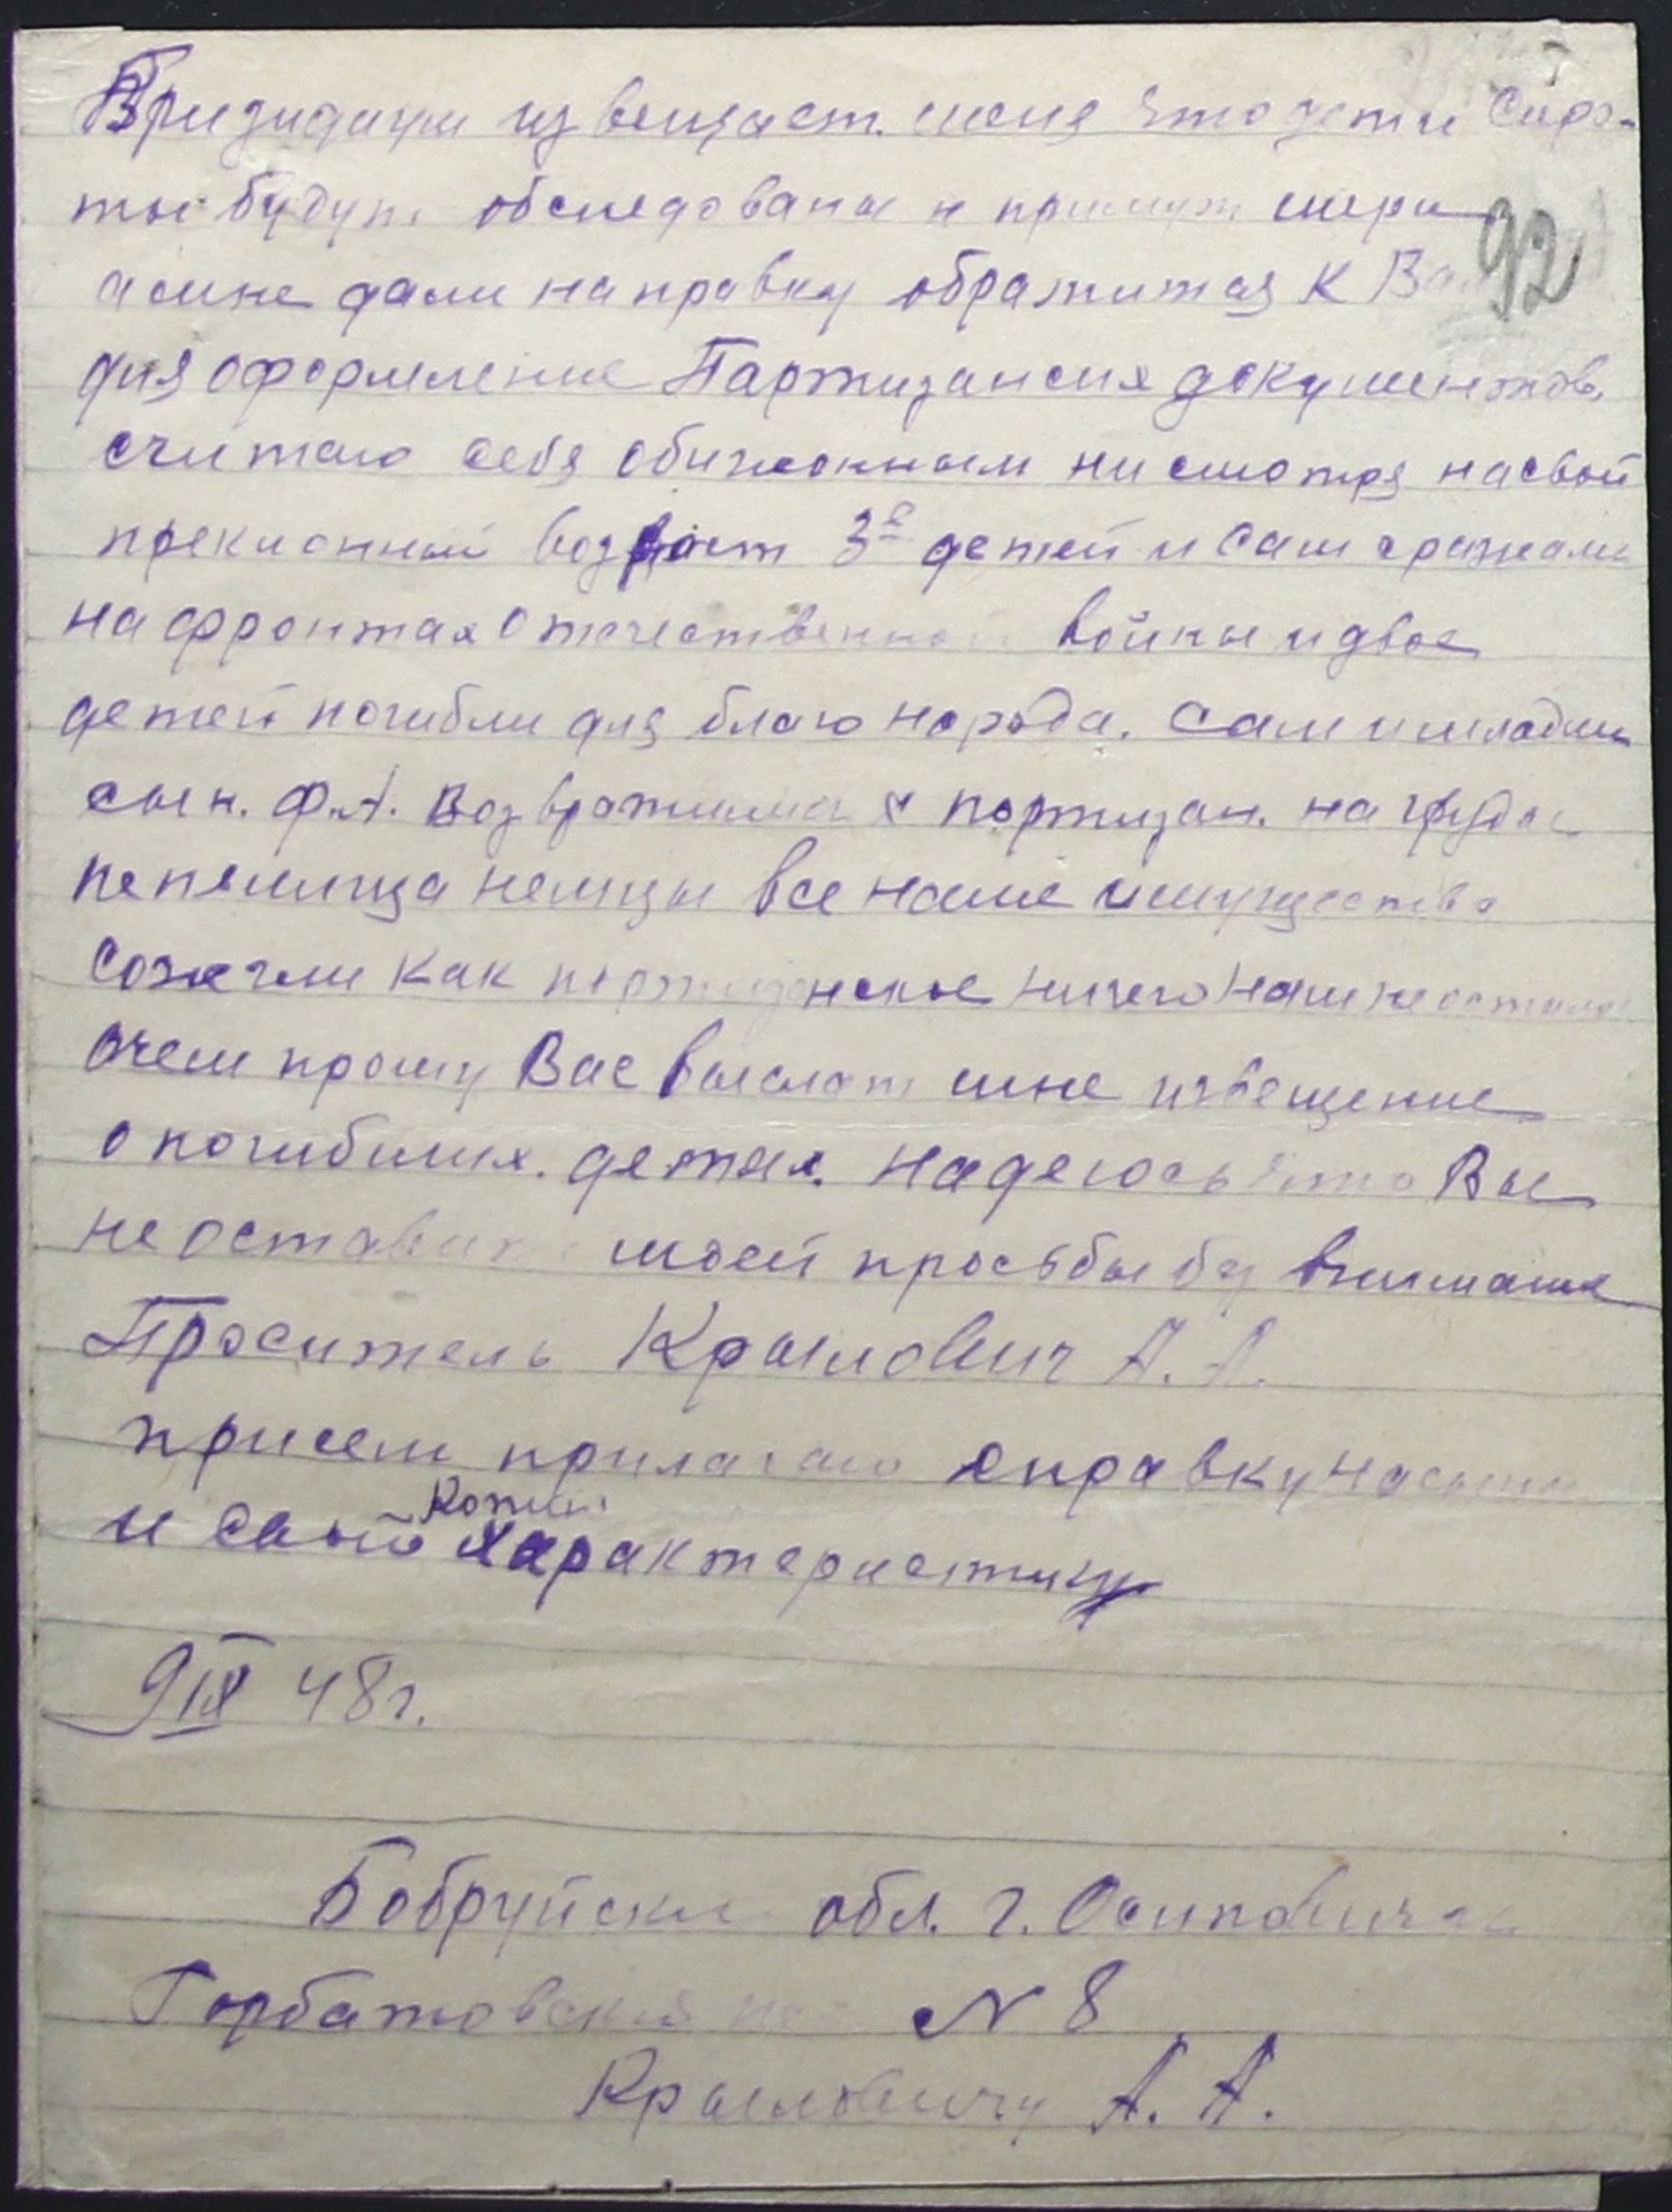 Призидиум извещает. меня что дети сиро-
ты будут обследованы и примут меры
92
а мне дали направку обратится к Вам
для оформление Партизанских документов,
считаю себя обиженным нисмотря на свой
преклонный возраст 3е детей и сам сражались
на фронтах Отечественной войны и двое
детей погибли для благо народа. Сам и младший
сын. Ф.А. Возвратились с партизан. на груды
пепелища немцы все наше имущество
сожгли как партизанское ничего нам не осталось
очем прошу Вас выслат мне извещение
о погибших. детях. Надеюсь что Вы
не оставите моей просьбы без внимание
Проситель Крылович А. А.
присем прилагаю справку на сына
и свою Копию характеристику
9 IX 48 г.
Бобруйская обл. г. Осиповичи
Горбатовская № 8
Крыловичу А. А.